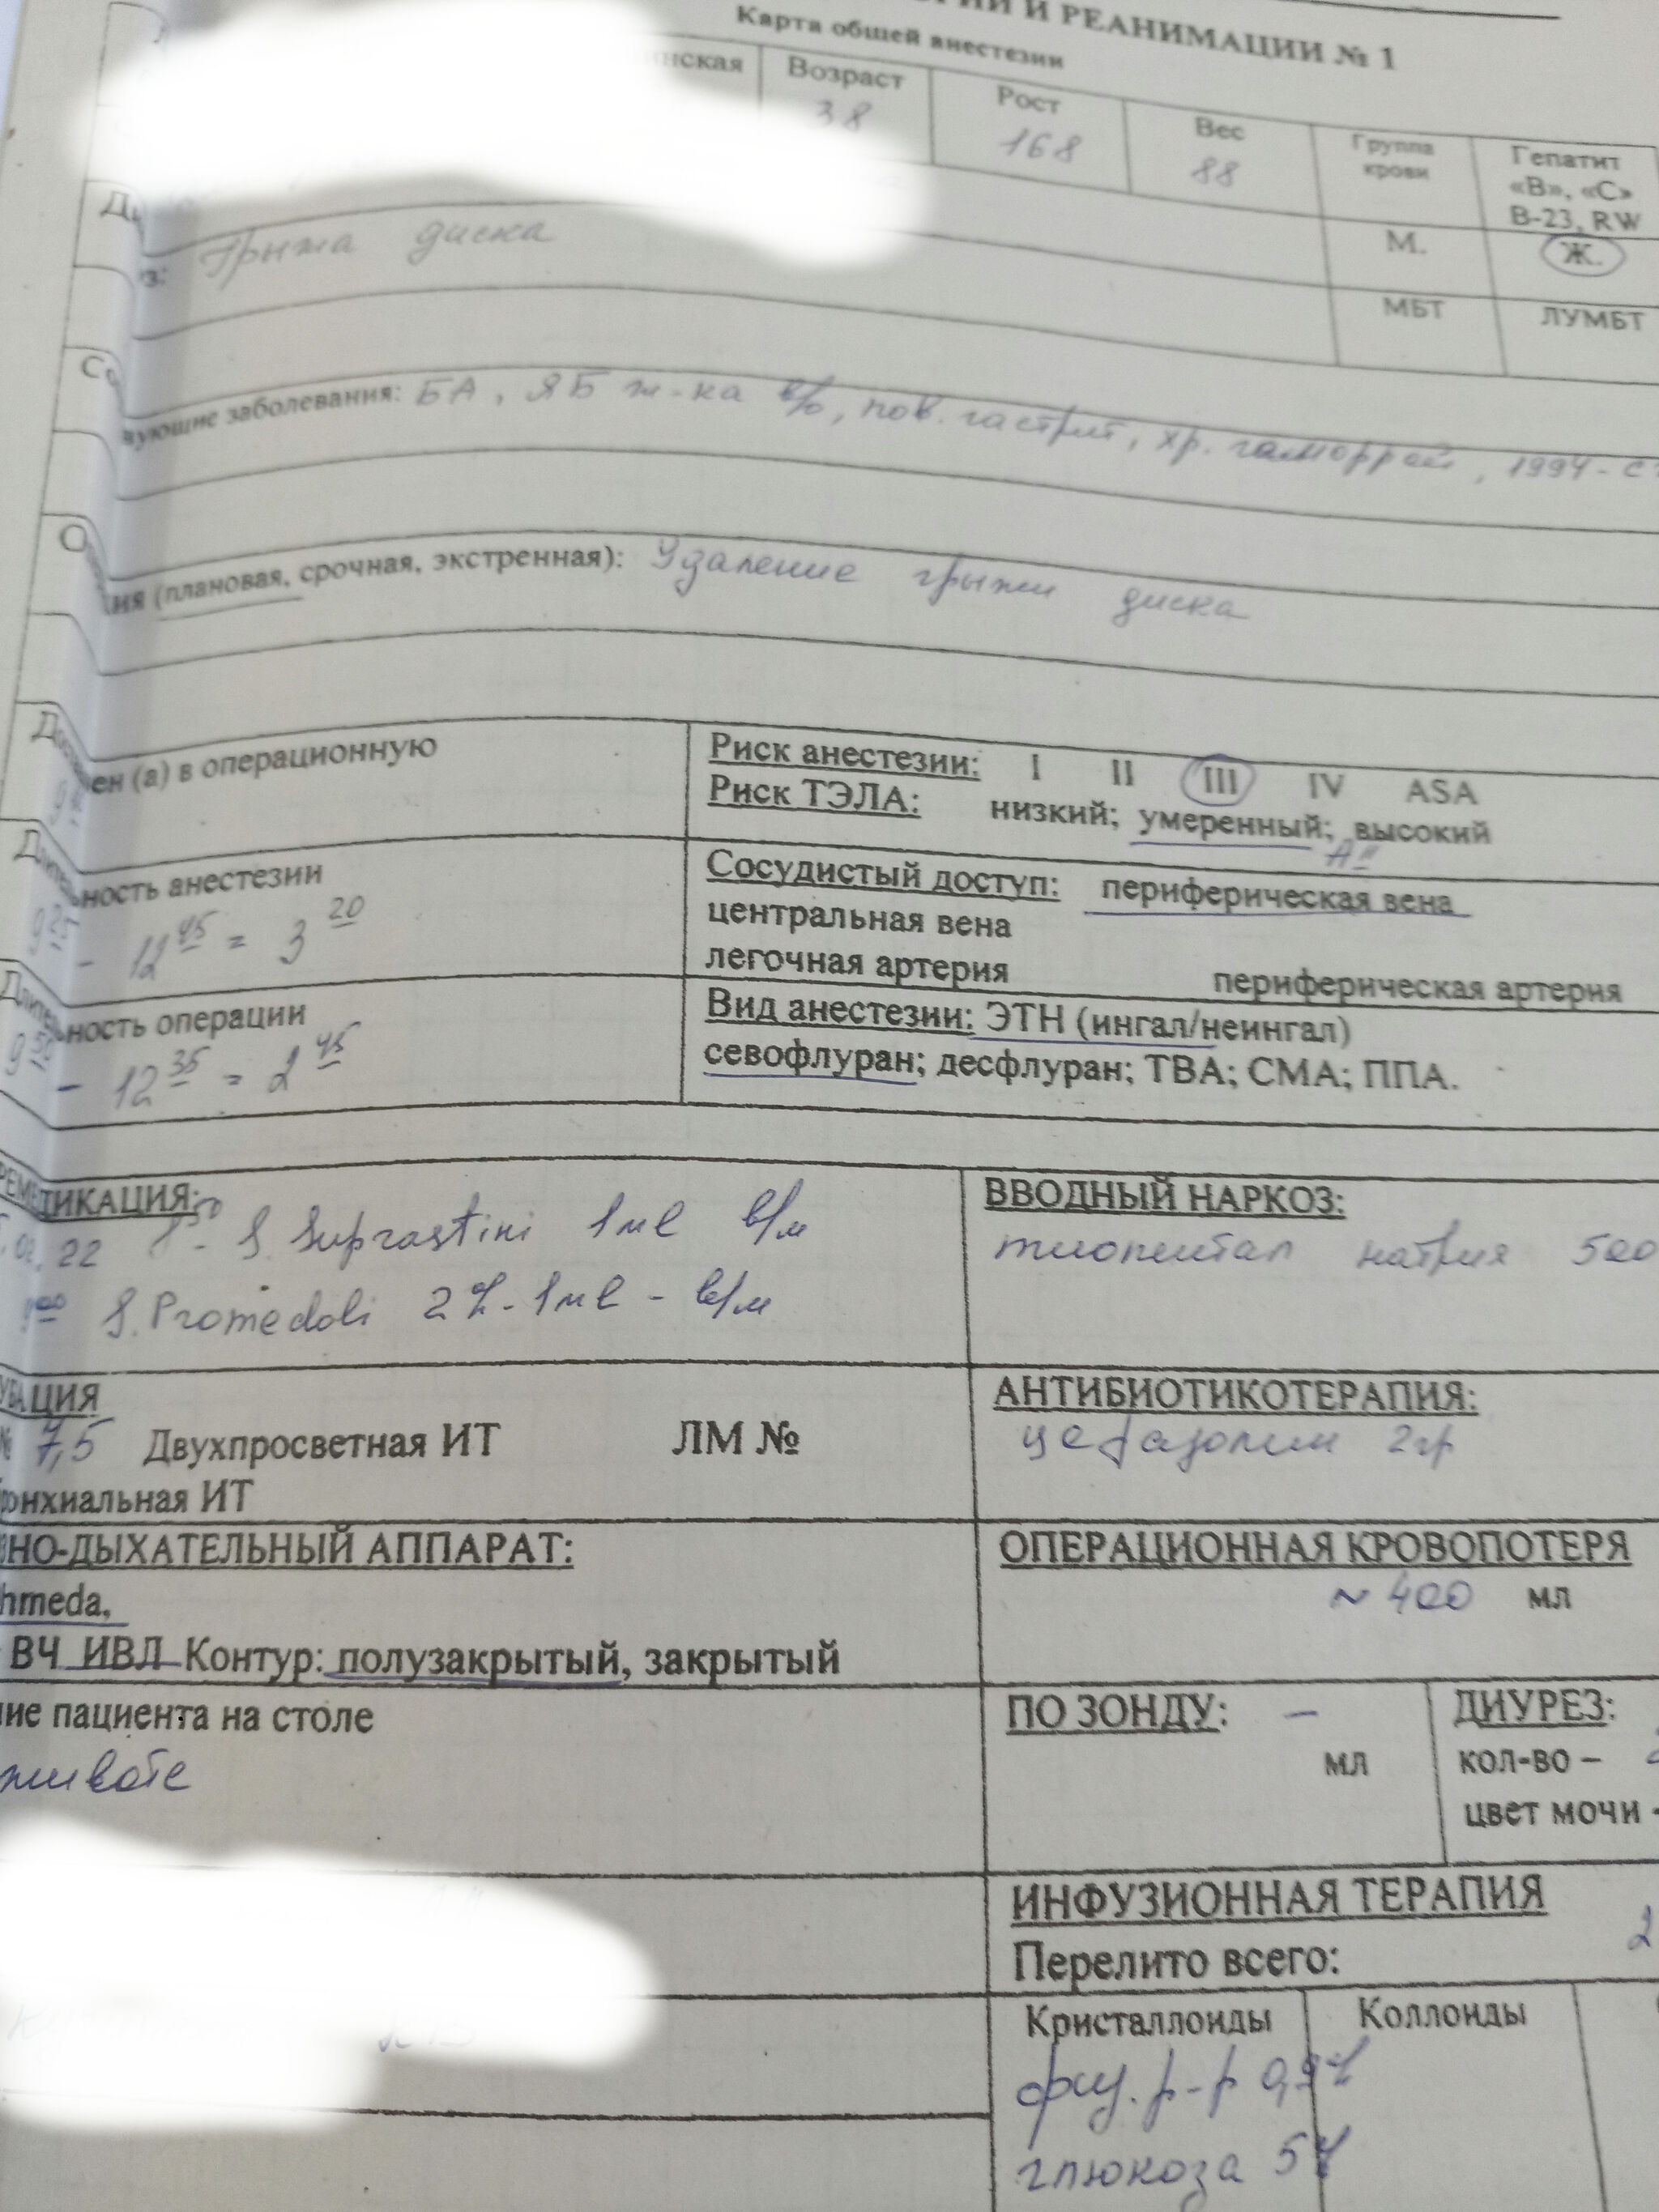 И РЕАНИМАЦИИ № 1
Карта общей анестезии
Возраст
Рост
Вес
Группа крови
Гепатит «В», «С» В-23, RW
38
168
88
М.
Ж.
МБТ
ЛУМБТ
з: Грыжа диска
вующие заболевания: БА, ЯБ ж-ка в/о, пов. гастрит, хр. геморрой, 1994 -
ия (плановая, срочная, экстренная): Удаление грыжи диска
ен (а) в операционную
Риск анестезии: I II III IV ASA
Риск ТЭЛА: низкий; умеренный; высокий
ность анестезии
- 12 45 = 3 20
Сосудистый доступ: периферическая вена
центральная вена
легочная артерия периферическая артерия
ность операции
9 50 - 12 35 = 2 45
Вид анестезии: ЭТН (ингал/неингал)
севофлуран; десфлуран; ТВА; СМА; ППА.
ТИКАЦИЯ:
22 8 30 - S. Suprastini 1 ml в/м
S. Promedoli 2% - 1 ml - в/м
ВВОДНЫЙ НАРКОЗ:
тиопентал натрия 500
УБАЦИЯ
№ 7,5 Двухпросветная ИТ ЛМ №
онхиальная ИТ
АНТИБИОТИКОТЕРАПИЯ:
цефазолин 2 гр
НО-ДЫХАТЕЛЬНЫЙ АППАРАТ:
hmeda,
ВЧ ИВЛ Контур: полузакрытый, закрытый
ОПЕРАЦИОННАЯ КРОВОПОТЕРЯ
~ 400 мл
ние пациента на столе
животе
ПО ЗОНДУ: –
мл
ДИУРЕЗ:
кол-во –
цвет мочи -
ИНФУЗИОННАЯ ТЕРАПИЯ
Перелито всего: 2
Кристаллоиды
Коллоиды
физ. р-р 0,9%
глюкоза 5%